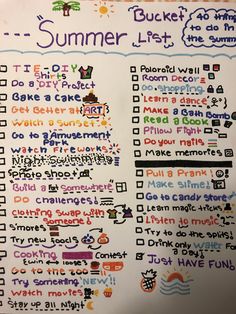 Bucket
40 things
to do in
the summer
--- Summer List
TIE-DIY
Shirts
Do a DIY Project
Bake a cake
Get Better at ART
Watch a sunset
Go to a Amusement
Park
Watch Fireworks
Night Swimming
Photo shoot
Build a Somewhere
DO challenges!
clothing swap with
someone
S'mores
Try new foods
Cooking Contest
Go to the zoo
Try Something NEW!!
Watch movies
Stay up all Night
Polaroid wall
Room Decor
Go shopping
Learn a dance
Make a Bath Bomb
Read a Book
Pillow Fight
Do your nails
Make memories
Pull a Prank!
Make Slime!
Go to candy store
Learn magic tricks
Listen to music
Try to do the splits!
Drink only water For
a Day!
Just HAVE FUN!